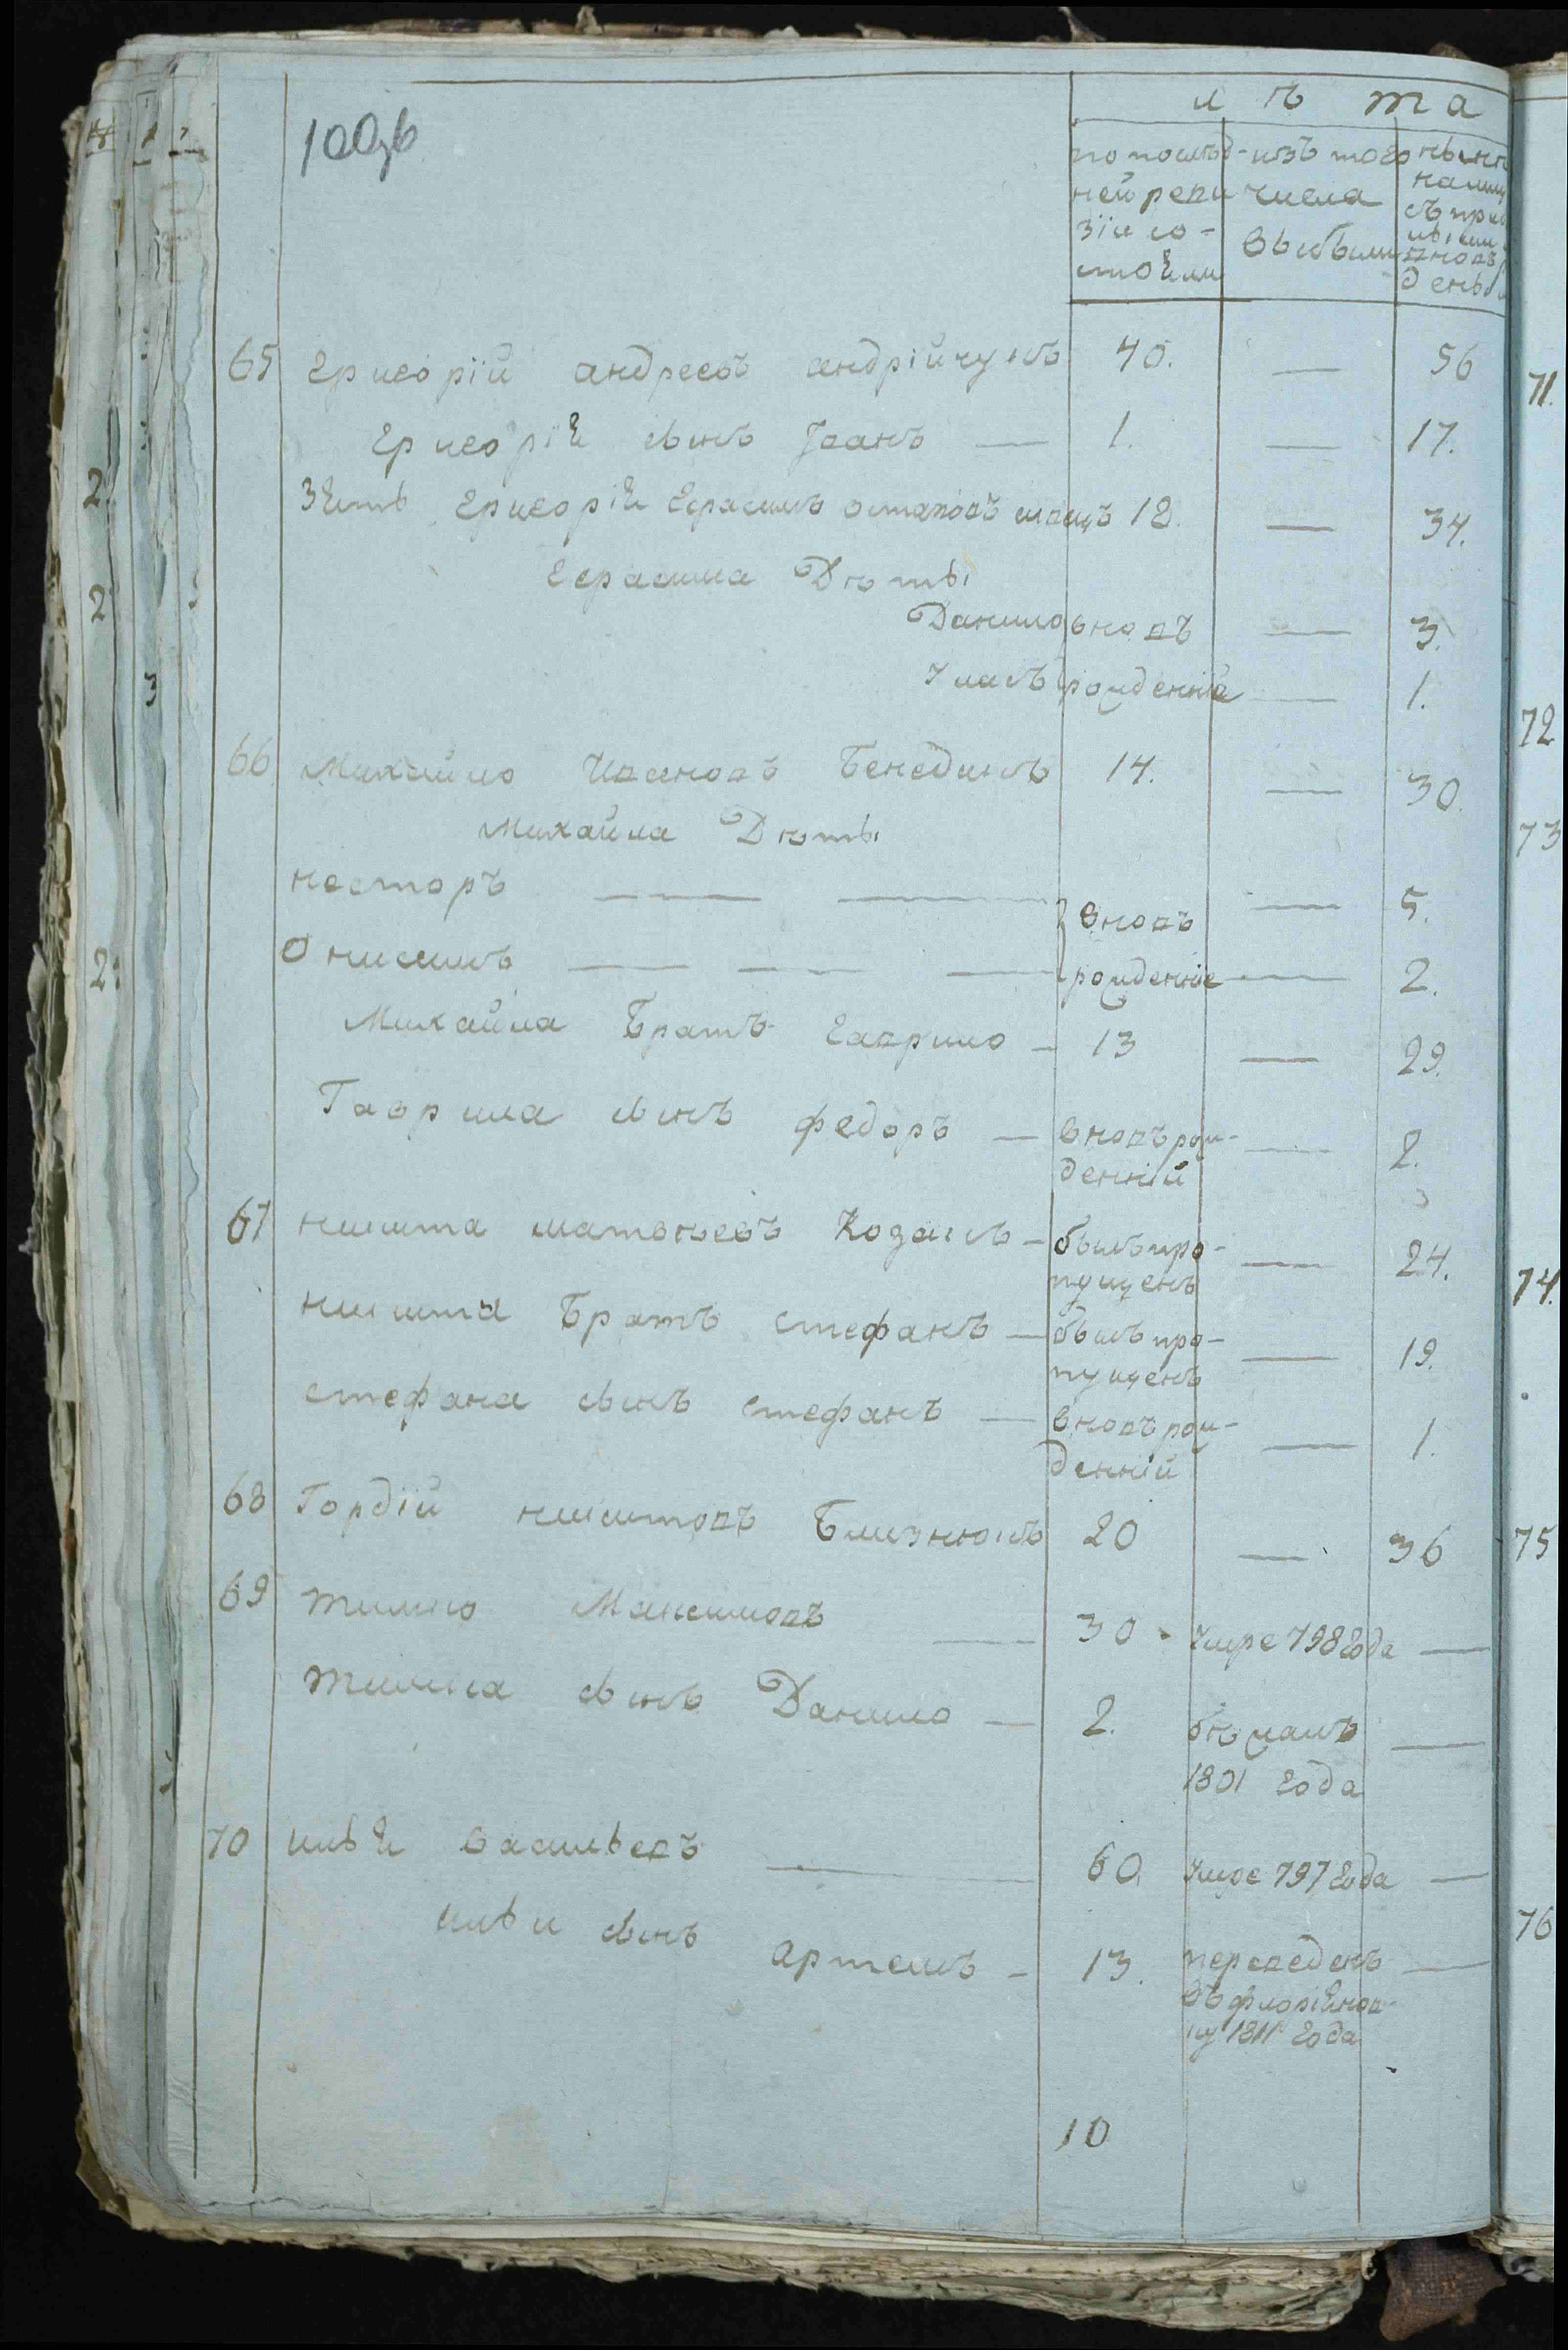 100зв
лѣта
по послѣд- изъ того нынѣ
ней реви числа налицо
зіи со- выбыли
стояли
65 Григорій андреевъ андрійчукъ 40. — 56
Григорія сынъ Іванъ — 1. — 17.
Зять Григорія Герасимъ остаповъ швецъ 18. — 34.
Герасима Дѣти
Данило вновъ — 3.
Уласъ рожденнія — 1.
66 Михайло Ивановъ Бенедикъ 14. — 30.
Михайла Дѣти
несторъ — вновъ — 5.
Онисимъ — рожденніе — 2.
Михайла Братъ Гаврило — 13 — 29.
Гаврила сынъ федоръ — вновъ рож- — 2.
денній
67 никита матвѣевъ Козакъ — былъ про- — 24.
пущенъ
никита Братъ стефанъ — былъ про- — 19.
пущенъ
стефана сынъ стефанъ — вновъ рож- — 1.
денній
68 Гордій никитовъ Близнюкъ 20 — 36
69 тимко Максимовъ — 30 умре 798 года —
тимка сынъ Данило — 2. бѣжалъ —
1801 года
70 илья васильевъ — 60. умре 797 года —
ильи сынъ артемъ — 13. переведенъ —
въ флоріянов-
ку 1811 года
10
2.
2
3
2.
71.
72
73
74.
75
76